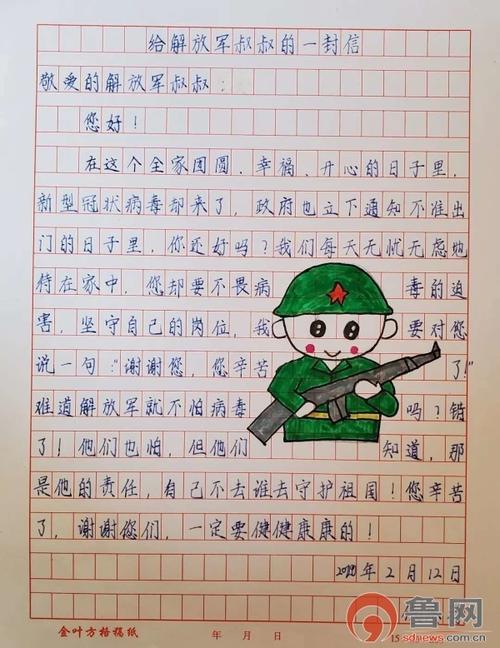 给解放军叔叔的一封信
敬爱的解放军叔叔：
您好！
在这个全家团圆、幸福、开心的日子里，
新型冠状病毒却来了，政府也立下通知不准出
门的日子里，你还好吗？我们每天无忧无虑地
待在家中，您却要不畏病毒的迫
害，坚守自己的岗位，我要对您
说一句：“谢谢您，您辛苦了！”
难道解放军就不怕病毒吗？错
了！他们也怕，但他们知道，那
是他的责任，自己不去谁去守护祖国！您辛苦
了，谢谢您们，一定要健健康康的！
年2月12日
金叶方格稿纸
年 月 日
15
鲁网
sdnews.com.cn